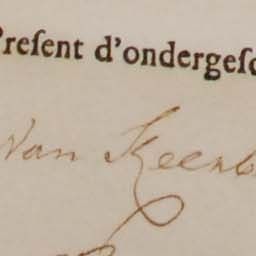 Preſent d'ondergeſc
Van Keenb